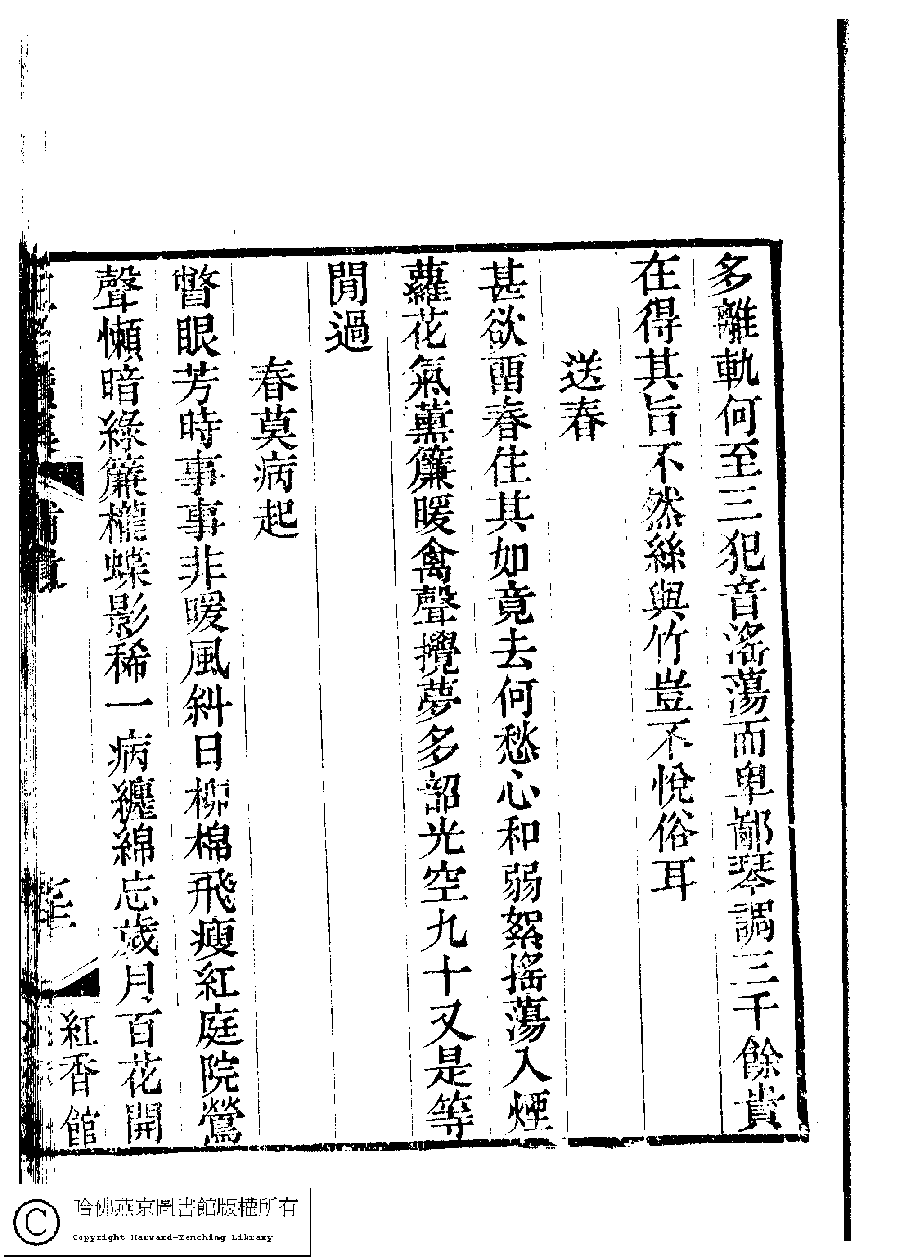 多離軌何至三犯音淫蕩而卑鄙琴調三千餘貴
在得其旨不然絲與竹豈不悅俗耳
送春
甚欲畱春住其如竟去何愁心和弱絮搖蕩入煙
蘿花氣薰簾暖禽聲攪夢多韶光空九十又是等
閒過
春莫病起
瞥眼芳時事事非暖風斜日柳棉飛瘦紅庭院鶯
聲懶暗綠簾櫳蝶影稀一病纏綿忘歲月百花開
補遺
紅香館
哈佛燕京圖書館版權所有
Copyright Harvard-Yenching Library